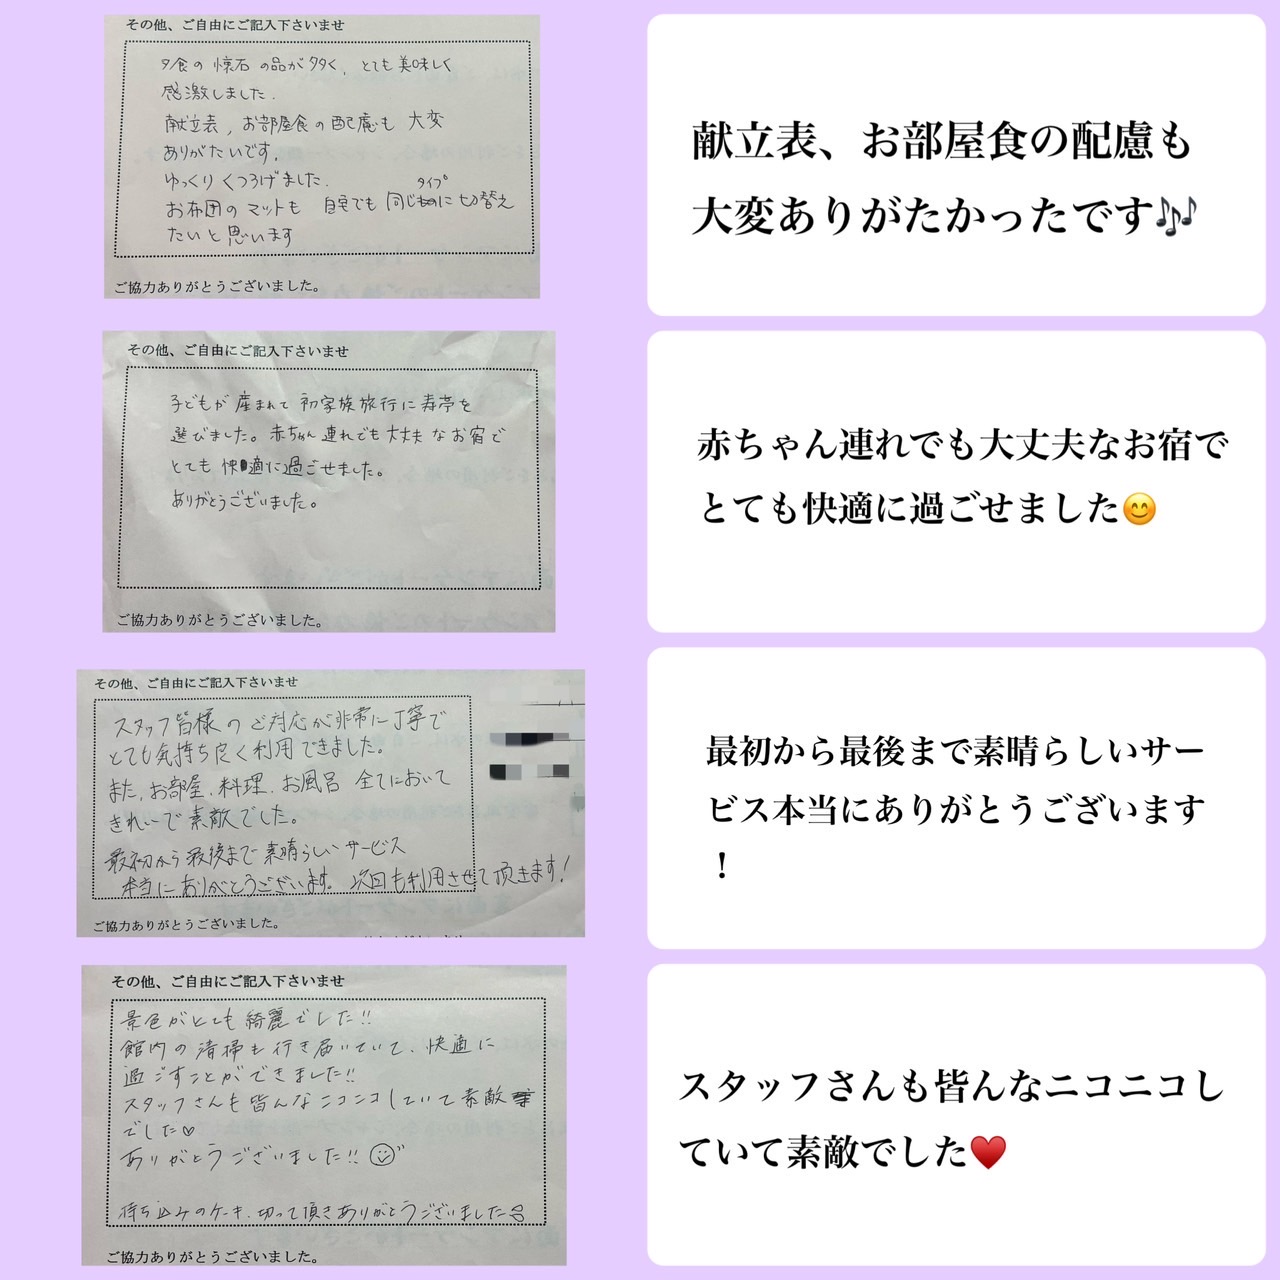 その他、ご自由にご記入下さいませ
夕食の懐石の品が多く、とても美味しく
感激しました.
献立表, お部屋食の配慮も 大変
ありがたいです.
ゆっくりくつろげました.
タイプ
お布団のマットも 自宅でも 同じものに切替え
たいと思います
ご協力ありがとうございました。
献立表、お部屋食の配慮も
大変ありがたかったです🎶
その他、ご自由にご記入下さいませ
子どもが産まれて初家族旅行に寿亭を
選びました。赤ちゃん連れでも大丈夫なお宿で
とても快適に過ごせました。
ありがとうございました。
ご協力ありがとうございました。
赤ちゃん連れでも大丈夫なお宿で
とても快適に過ごせました😊
その他、ご自由にご記入下さいませ
スタッフ皆様のご対応が非常に丁寧で
とても気持ち良く利用できました。
また、お部屋、料理、お風呂 全てにおいて
きれいで素敵でした。
最初から最後まで素晴らしいサービス
本当にありがとうございます。次回も利用させて頂きます!
ご協力ありがとうございました。
最初から最後まで素晴らしいサー
ビス本当にありがとうございます
！
その他、ご自由にご記入下さいませ
景色がとても綺麗でした!!
館内の清掃も行き届いていて、快適に
過ごすことができました!!
スタッフさんも皆んなニコニコしていて素敵
でした♡
ありがとうございました!!
持ち込みのケーキ、切って頂きありがとうございました
ご協力ありがとうございました。
スタッフさんも皆んなニコニコし
ていて素敵でした♥️